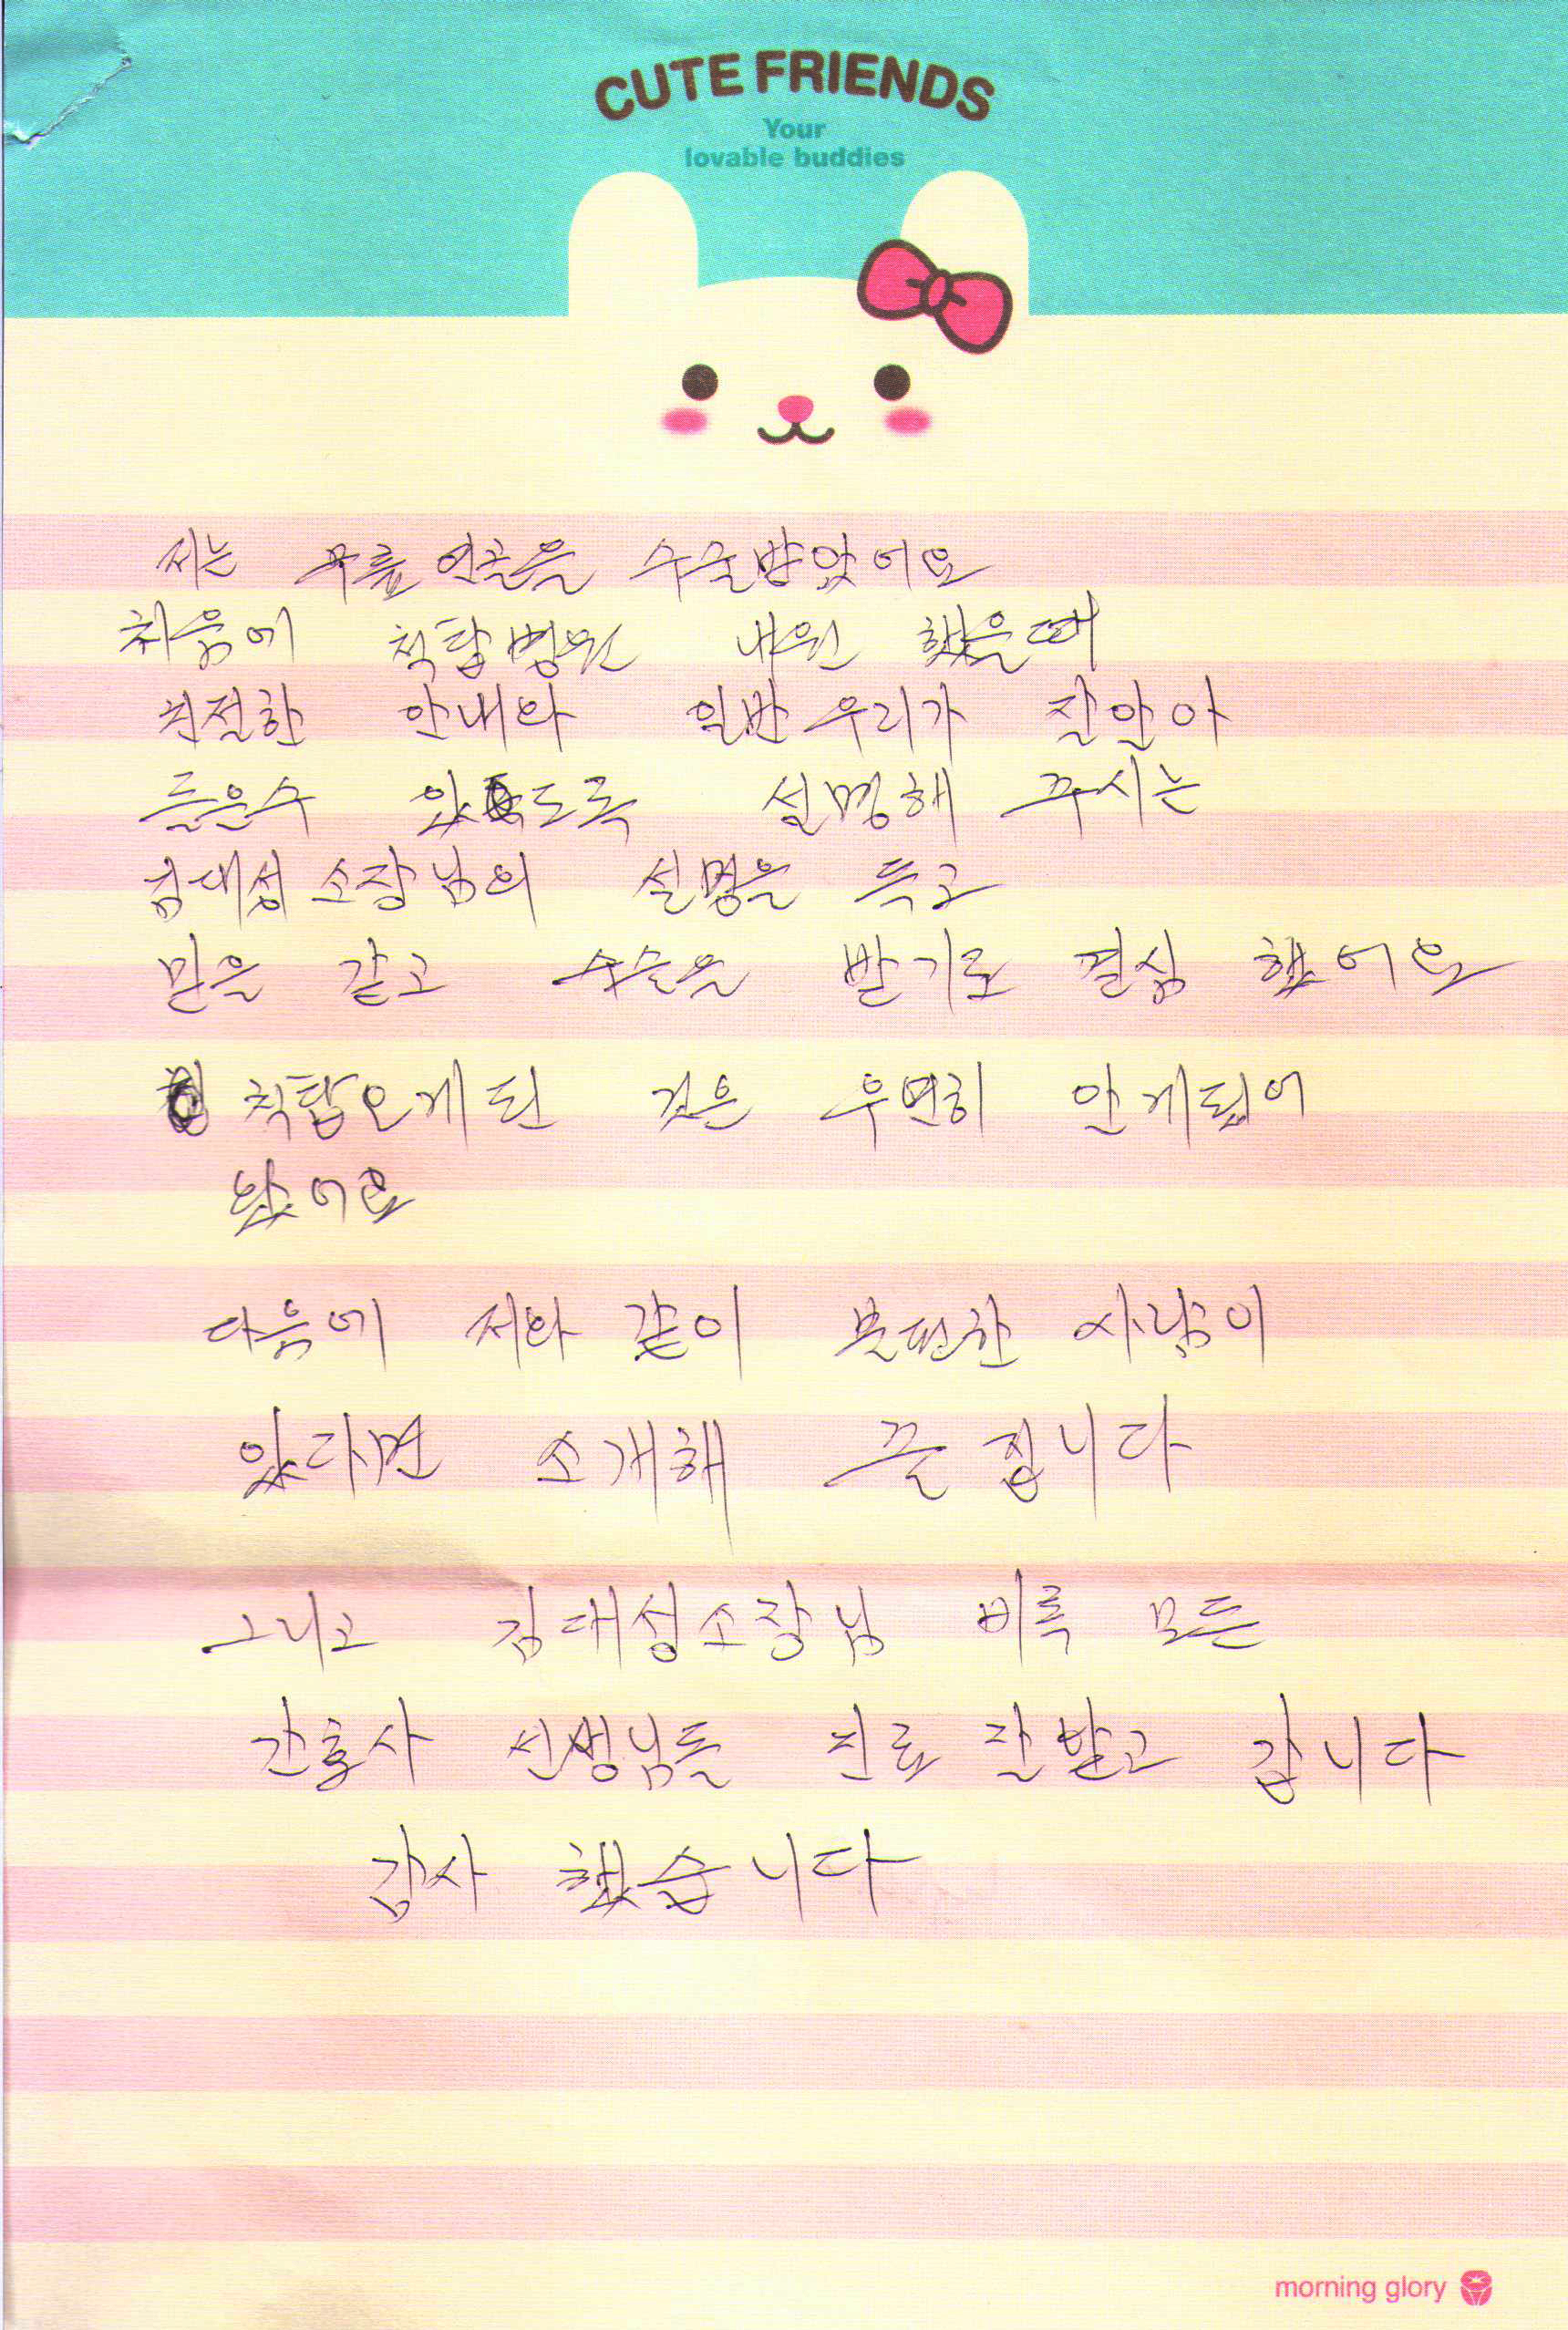 CUTE FRIENDS
Your
lovable buddies
저는 무릎 연골을 수술받았어요
처음에 척탑병원 내원 했을때
친절한 안내와 일반 우리가 잘알아
들은수 있도록 설명해 주시는
김대성 소장님의 설명을 듣고
믿음 같고 수술을 받기로 결심 했어요
척탑오게 된 것은 우연히 알게됬어
왔어요
다음에 저와 같이 불편한 사람이
있다면 소개해 줄 겁니다
그리고 김대성소장님 비록 모든
간호사 선생님들 진료 잘받고 갑니다
감사 했습니다
morning glory